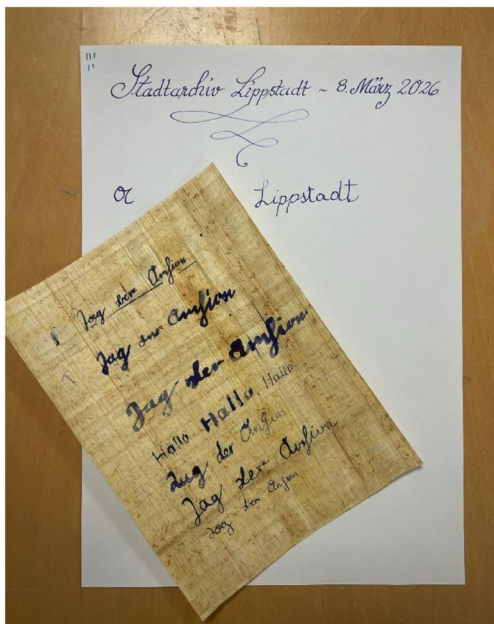 Stadtarchiv Lippstadt ~ 8. März 2026
Lippstadt
Tag der Archive
Tag der Archive
Tag der Archive
Hallo Hallo, Hallo
Tag der Archive
Tag der Archive
Tag der Archive